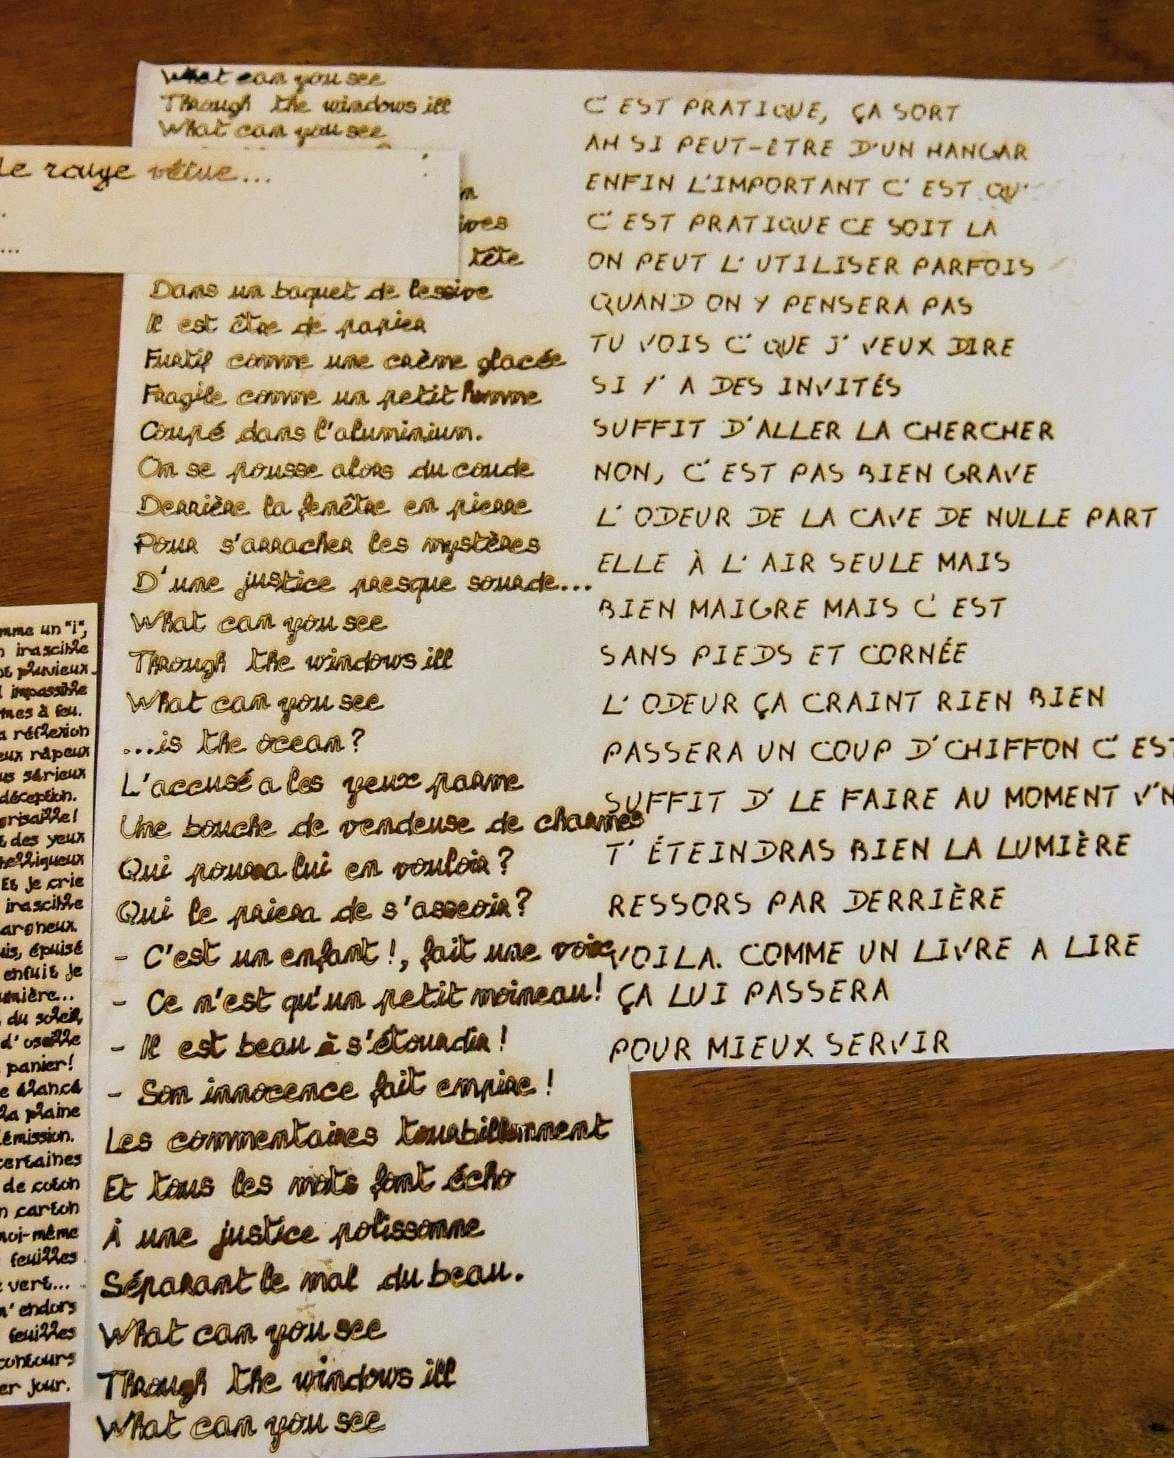 What can you see
Through the windows ill
What can you see
le rouge vêtue...
...
tête
Dans un baquet de lessive
Il est être de papier
Furtif comme une crème glacée
Fragile comme un petit homme
Coupé dans l'aluminium.
On se pousse alors du coude
Derrière la fenêtre en pierre
Pour s'arracher les mystères
D'une justice presque sourde...
What can you see
Through the windows ill
What can you see
...is the ocean?
L'accusé a les yeux parme
Une bouche de vendeuse de charmes
Qui pourra lui en vouloir?
Qui le priera de s'asseoir?
- C'est un enfant!, fait une voix
- Ce n'est qu'un petit moineau!
- Il est beau à s'étourdir!
- Son innocence fait empire!
Les commentaires tourbillonnent
Et tous les mots font écho
À une justice polissonne
Séparant le mal du beau.
What can you see
Through the windows ill
What can you see
C'EST PRATIQUE, ÇA SORT
AH SI PEUT-ETRE D'UN HANGAR
ENFIN L'IMPORTANT C'EST QU'
C'EST PRATIQUE CE SOIT LA
ON PEUT L'UTILISER PARFOIS
QUAND ON Y PENSERA PAS
TU VOIS C'QUE J'VEUX DIRE
SI Y'A DES INVITÉS
SUFFIT D'ALLER LA CHERCHER
NON, C'EST PAS BIEN GRAVE
L'ODEUR DE LA CAVE DE NULLE PART
ELLE À L'AIR SEULE MAIS
BIEN MAIGRE MAIS C'EST
SANS PIEDS ET CORNÉE
L'ODEUR ÇA CRAINT RIEN BIEN
PASSERA UN COUP D'CHIFFON C'EST
SUFFIT D'LE FAIRE AU MOMENT V'N
T'ÉTEINDRAS BIEN LA LUMIÈRE
RESSORS PAR DERRIÈRE
VOILA. COMME UN LIVRE A LIRE
ÇA LUI PASSERA
POUR MIEUX SERVIR
mme un "i",
irascible
pluvieux
impassible
mes à feu.
réflexion
eux râpeux
us sérieux
déception.
grisaille!
des yeux
belliqueux
Et je crie
irascible
hargneux
uis, épuisé
enfuit je
umière...
du soleil,
d'oseille
panier!
e élancé
la plaine
émission.
certaines
de coton
n carton
moi-même
feuilles
vert...
m'endors
feuilles
contours
er jour.